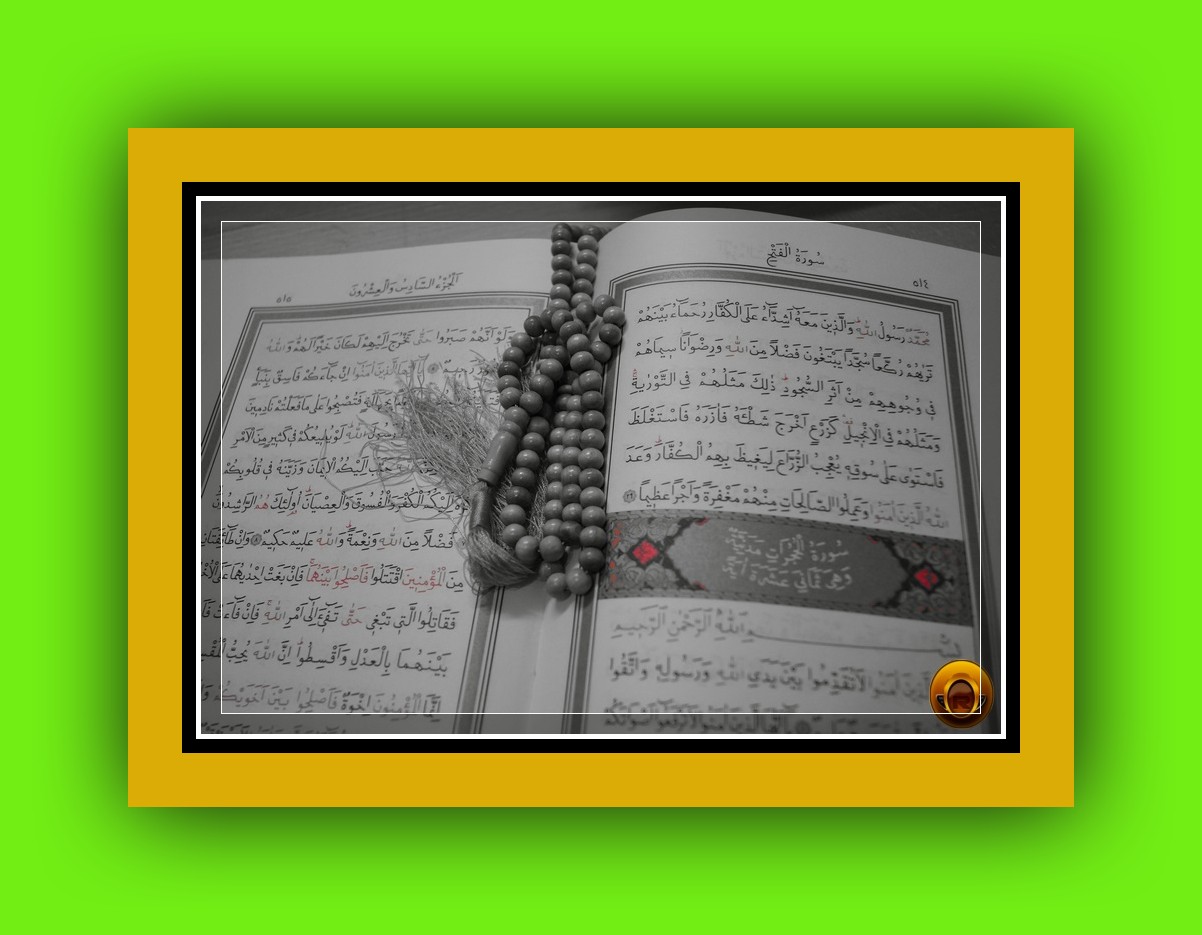 سُورَةُ الْفَتْحِ
٥١٤
مُحَمَّدٌ رَسُولُ اللّٰهِ وَالَّذِينَ مَعَهُٓ اَشِدَّٓاءُ عَلَى الْكُفَّارِ رُحَمَٓاءُ بَيْنَهُمْ
تَرٰيهُمْ رُكَّعًا سُجَّدًا يَبْتَغُونَ فَضْلًا مِنَ اللّٰهِ وَرِضْوَانًا سِيمَاهُمْ
فِي وُجُوهِهِمْ مِنْ اَثَرِ السُّجُودِ ذٰلِكَ مَثَلُهُمْ فِي التَّوْرٰيةِ
وَمَثَلُهُمْ فِي الْاِنْجِيلِ كَزَرْعٍ اَخْرَجَ شَطْـَٔهُ فَاٰزَرَهُ فَاسْتَغْلَظَ
فَاسْتَوٰى عَلٰى سُوقِهِ يُعْجِبُ الزُّرَّاعَ لِيَغِيظَ بِهِمُ الْكُفَّارَ وَعَدَ
اللّٰهُ الَّذِينَ اٰمَنُوا وَعَمِلُوا الصَّالِحَاتِ مِنْهُمْ مَغْفِرَةً وَاَجْرًا عَظِيمًا ﴿٢٩﴾
سُورَةُ الْحُجُرَاتِ مَدَنِيَّةٌ
وَهِيَ ثَمَانِيَ عَشْرَةَ اٰيَةً
بِسْمِ اللّٰهِ الرَّحْمٰنِ الرَّحِيمِ
الَّذِينَ اٰمَنُوا لَا تُقَدِّمُوا بَيْنَ يَدَيِ اللّٰهِ وَرَسُولِهِ وَاتَّقُوا
يَٓا اَيُّهَا الَّذِينَ اٰمَنُوا لَا تَرْفَعُٓوا اَصْوَاتَكُمْ
اَلْجُزْءُ السَّادِسُ وَالْعِشْرُونَ
٥١٥
وَلَوْ اَنَّهُمْ صَبَرُوا حَتّٰى تَخْرُجَ اِلَيْهِمْ لَكَانَ خَيْرًا لَهُمْ وَاللّٰهُ
رَحِيمٌ يَٓا اَيُّهَا الَّذِينَ اٰمَنُٓوا اِنْ جَٓاءَكُمْ فَاسِقٌ بِنَبَأٍ
فَتُصْبِحُوا عَلٰى مَا فَعَلْتُمْ نَادِمِينَ
رَسُولَ اللّٰهِ لَوْ يُطِيعُكُمْ فِي كَثِيرٍ مِنَ الْاَمْرِ
حَبَّبَ اِلَيْكُمُ الْاِيمَانَ وَزَيَّنَهُ فِي قُلُوبِكُمْ
وَكَرَّهَ اِلَيْكُمُ الْكُفْرَ وَالْفُسُوقَ وَالْعِصْيَانَ اُولٰٓئِكَ هُمُ الرَّاشِدُونَ
فَضْلًا مِنَ اللّٰهِ وَنِعْمَةً وَاللّٰهُ عَلِيمٌ حَكِيمٌ ﴿٨﴾ وَاِنْ طَٓائِفَتَانِ
مِنَ الْمُؤْمِنِينَ اقْتَتَلُوا فَاَصْلِحُوا بَيْنَهُمَا فَاِنْ بَغَتْ اِحْدٰيهُمَا عَلَى
فَقَاتِلُوا الَّتِي تَبْغِي حَتّٰى تَفِٓيءَ اِلٰٓى اَمْرِ اللّٰهِ فَاِنْ فَٓاءَتْ
بَيْنَهُمَا بِالْعَدْلِ وَاَقْسِطُوا اِنَّ اللّٰهَ يُحِبُّ
اِنَّمَا الْمُؤْمِنُونَ اِخْوَةٌ فَاَصْلِحُوا بَيْنَ اَخَوَيْكُمْ